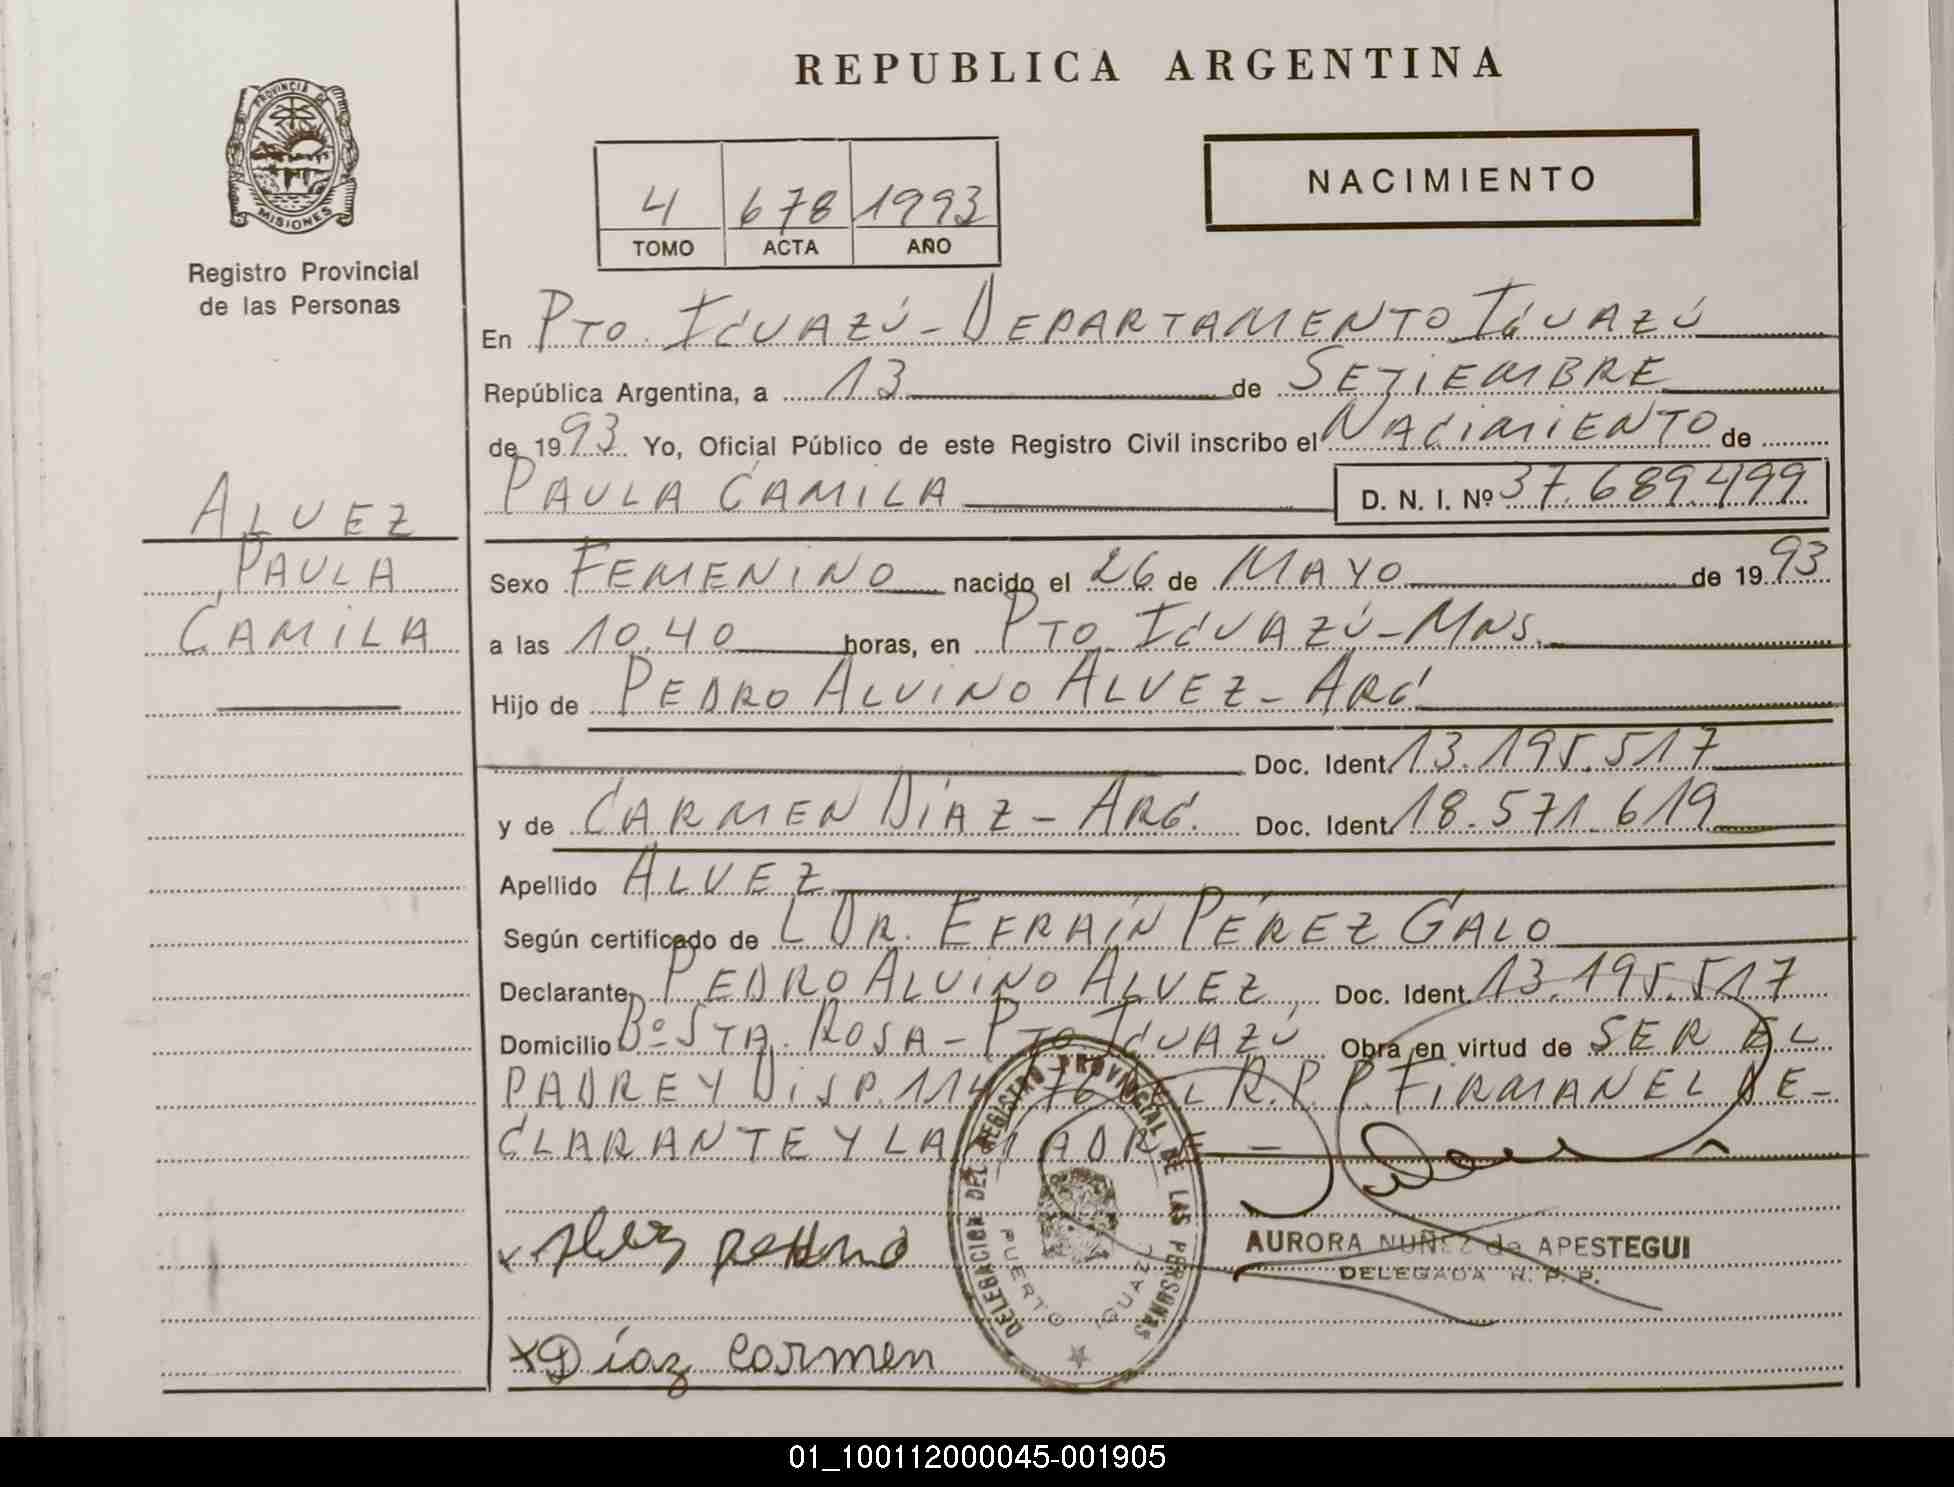 REPUBLICA ARGENTINA
PROVINCIA DE
MISIONES
Registro Provincial
de las Personas
NACIMIENTO
4 678 1993
TOMO ACTA AÑO
En PTO. IGUAZÚ - DEPARTAMENTO IGUAZÚ
República Argentina, a 13 de SETIEMBRE
de 1993 Yo, Oficial Público de este Registro Civil inscribo el NACIMIENTO de
PAULA CAMILA D. N. I. Nº 37.689.499
ALVEZ
PAULA
CAMILA
Sexo FEMENINO nacido el 26 de MAYO de 1993
a las 10.40 horas, en PTO. IGUAZÚ - MNS.
Hijo de PEDRO ALVINO ALVEZ - ARG.
Doc. Ident. 13.195.517
y de CARMEN DÍAZ - ARG. Doc. Ident. 18.571.619
Apellido ALVEZ
Según certificado de L DR. EFRAÍN PÉREZ GALO
Declarante PEDRO ALVINO ALVEZ Doc. Ident. 13.195.517
Domicilio Bº STA. ROSA - PTO IGUAZÚ Obra en virtud de SER EL
PADRE Y DISP. 114/76 DEL R.P.P. FIRMAN EL DE-
CLARANTE Y LA MADRE. -
DELEGACION DEL REGISTRO PROVINCIAL DE LAS PERSONAS
PUERTO IGUAZU
AURORA NUÑEZ de APESTEGUI
DELEGADA R. P. P.
x Díaz Carmen
01_100112000045-001905